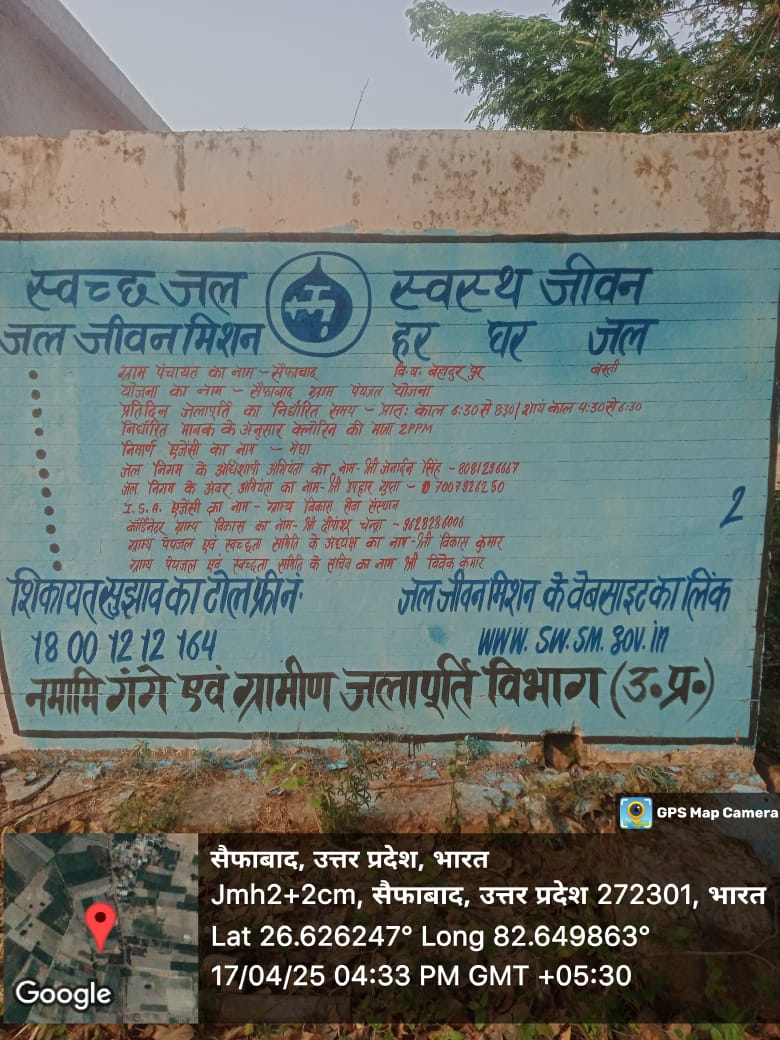 स्वच्छ जल स्वस्थ जीवन
जल जीवन मिशन हर घर जल
ग्राम पंचायत का नाम - सैफाबाद वि.ष. बहादुर पुर बस्ती
योजना का नाम - सैफाबाद ग्राम पेयजल योजना
प्रतिदिन जलापूर्ति का निर्धारित समय - प्रातः काल 6:30 से 8:30/ शायं काल 4:30 से 6:30
निर्धारित मानक के अनुसार क्लोरिन की मात्रा 2PPM
निमार्ण ऐजेंसी का नाम - मेघा
जल निगम के अधिशाषी अभियंता का नाम - श्री जनार्दन सिंह - 8081296667
जल निगम के अवर अभियंता का नाम - श्री उपहार गुप्ता - 7007926250
I.S.A. ऐजेंसी का नाम - ग्राम्य विकास सेवा संस्थान
कॉर्डिनेटर ग्राम्य विकास का नाम - श्री दीपांशु चन्द्रा - 9628286006
ग्राम्य पेयजल एवं स्वच्छता समिति के अध्यक्ष का नाम - श्री विकास कुमार
ग्राम्य पेयजल एवं स्वच्छता समिति के सचिव का नाम श्री विवेक कुमार
2
शिकायत सुझाव का टोल फ्री नं. जल जीवन मिशन के वेबसाइट का लिंक
18 00 12 12 164 www.sw.sm.gov.in
नमामि गंगे एवं ग्रामीण जलापूर्ति विभाग (उ.प्र.)
GPS Map Camera
सैफाबाद, उत्तर प्रदेश, भारत
Jmh2+2cm, सैफाबाद, उत्तर प्रदेश 272301, भारत
Lat 26.626247° Long 82.649863°
17/04/25 04:33 PM GMT +05:30
Google